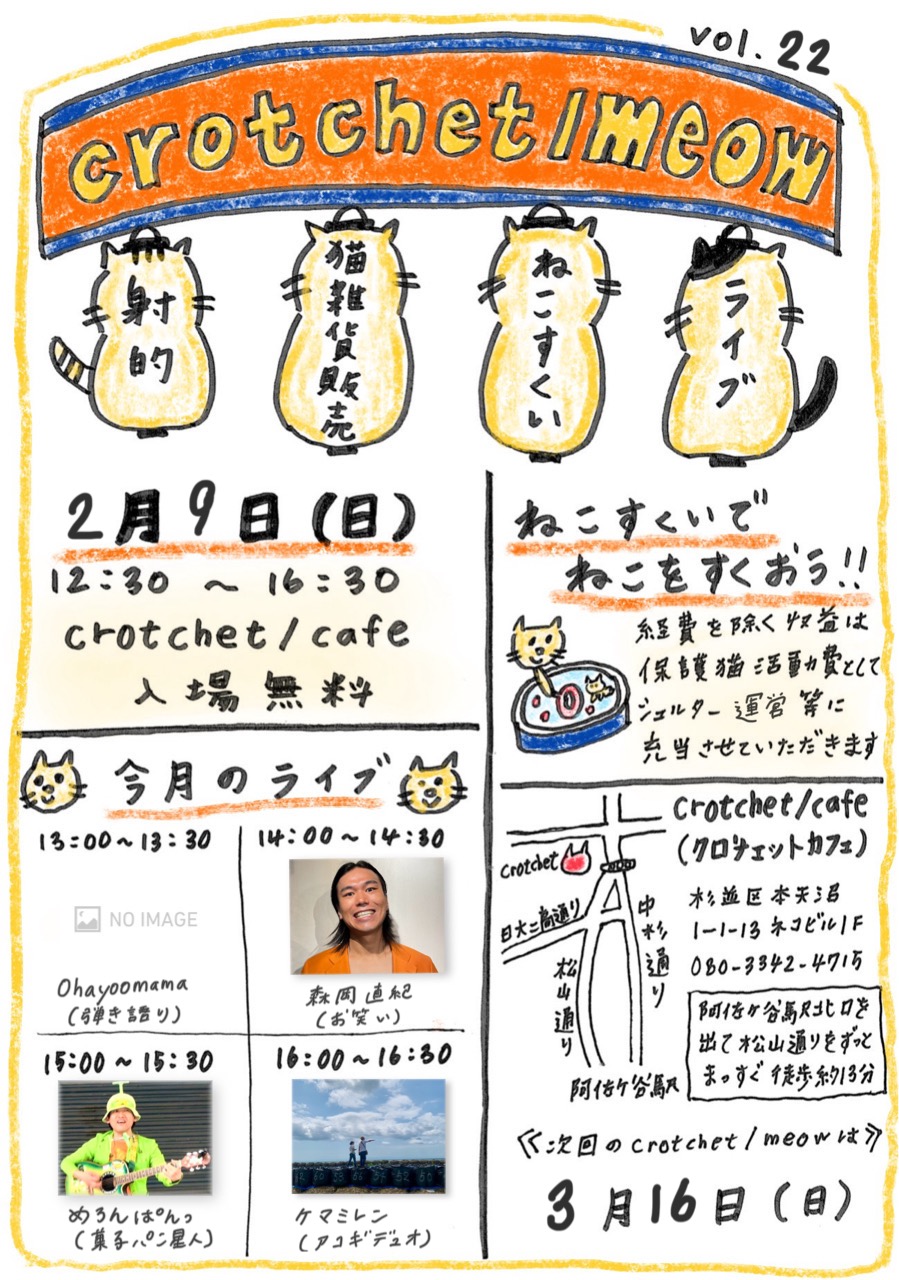 vol.22
crotchet/meow
射的
猫雑貨販売
ねこすくい
ライブ
2月9日(日)
12:30 〜 16:30
crotchet/cafe
入場無料
ねこすくいで
ねこをすくおう!!
経費を除く収益は
保護猫活動費として
シェルター運営等に
充当させていただきます
今月のライブ
13:00〜13:30
NO IMAGE
Ohayoomama
(弾き語り)
14:00〜14:30
森岡直紀
(お笑い)
15:00〜15:30
めろんぱんっ
(菓子パン星人)
16:00〜16:30
ケマミレン
(アコギデュオ)
crotchet/cafe
(クロチェットカフェ)
crotchet
日大二高通り
中杉通り
松山通り
阿佐ケ谷駅
杉並区本天沼
1-1-13 ネコビル1F
080-3342-4715
阿佐ケ谷駅北口を
出て松山通りをずっと
まっすぐ 徒歩約13分
≪次回のcrotchet/meowは≫
3月16日(日)